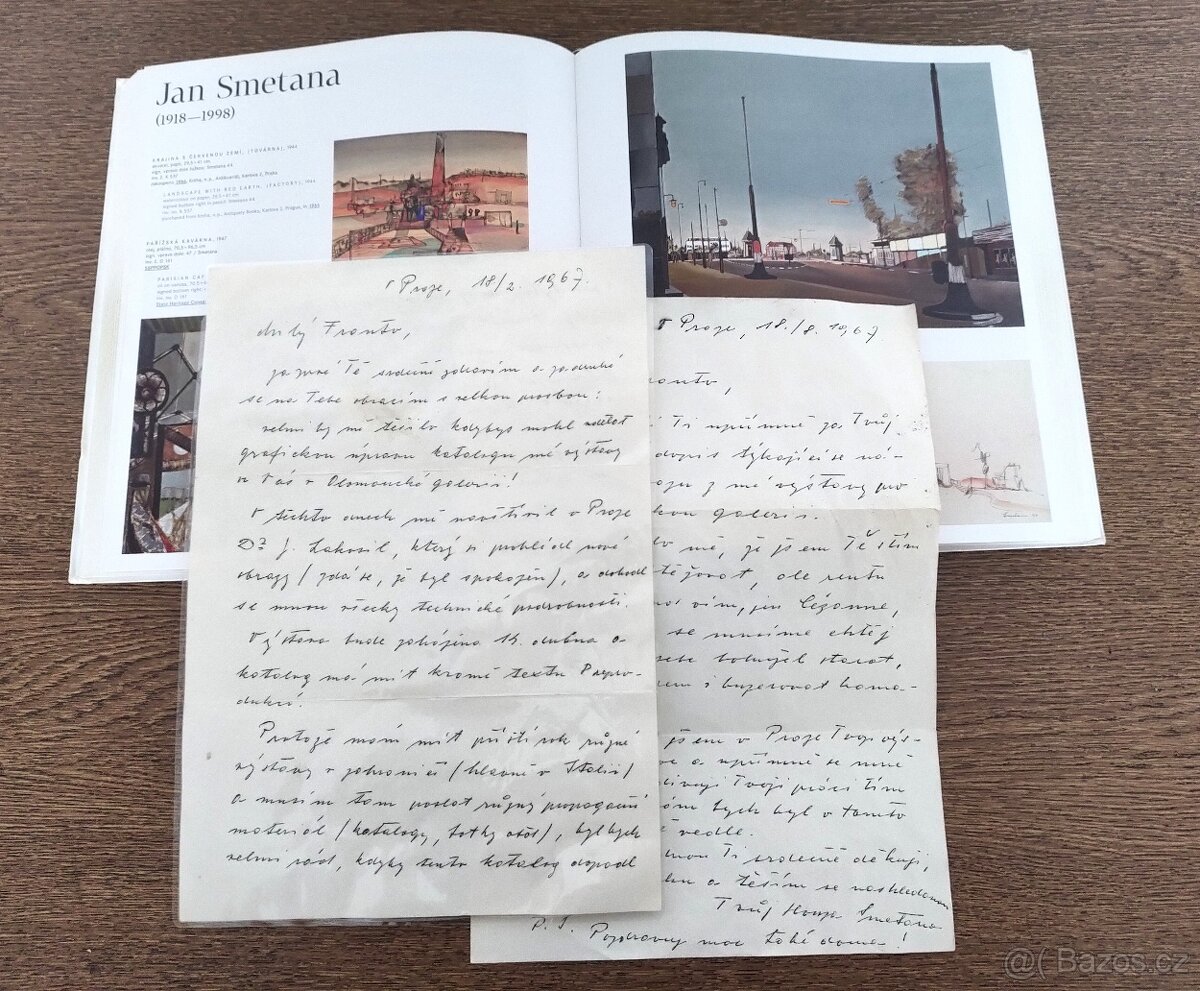 Jan Smetana
(1918—1998)
KRAJINA S ČERVENOU ZEMÍ, (TOVÁRNA), 1944
LANDSCAPE WITH RED EARTH, (FACTORY), 1944
PAŘÍŽSKÁ KAVÁRNA, 1947
PARISIAN CAF
v Praze, 18/2. 1967.
milý Franto,
Tě srdečně zdravím a
se na Tebe obracím s velkou prosbou:
velmi by mě těšilo kdybys mohl udělat
grafickou úpravu katalogu mé výstavy
u Vás v Olomoucké galerii!
V těchto dnech mě navštívil v Praze
Dr J. Zakosil, který si prohlédl nové
obrazy (zdá se, že byl spokojen), a dohodl
se mnou všecky technické podrobnosti.
Výstava bude zahájena 14. dubna a
katalog má mít kromě textu 8 repro-
dukcí.
Protože mám mít příští rok různé
výstavy v zahraničí (hlavně v Itálii)
a musím tam poslat různý propagační
materiál (katalogy, fotky atd), byl bych
velmi rád, kdyby tento katalog dopadl
v Praze, 18./8. 1967.
anto,
Ti upřímně za Tvůj
dopis týkající se ná-
z mé výstavy pro
kou galerii.
mě, že jsem Tě s tím
ale
vím, jen Cézanne,
se musíme chtěj
sebe starat,
i buzerovat kama-
jsem v Praze Tvoji výs-
a upřímně se mně
Tvoji práci tím
bych byl v tomto
vedle.
Ti srdečně děkuji,
a těším se nashledanou
Tvůj Honza Smetana
P. S. Pozdravuj moc také doma!
@( Bazos.cz